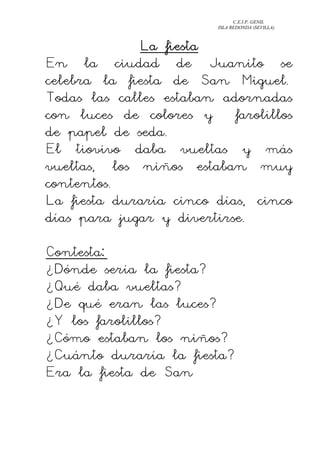 C.E.I.P. GENIL
ISLA REDONDA (SEVILLA)
La fiesta
En la ciudad de Juanito se
celebra la fiesta de San Miguel.
Todas las calles estaban adornadas
con luces de colores y farolillos
de papel de seda.
El tiovivo daba vueltas y más
vueltas, los niños estaban muy
contentos.
La fiesta duraría cinco días, cinco
días para jugar y divertirse.
Contesta:
¿Dónde sería la fiesta?
¿Qué daba vueltas?
¿De qué eran las luces?
¿Y los farolillos?
¿Cómo estaban los niños?
¿Cuánto duraría la fiesta?
Era la fiesta de San